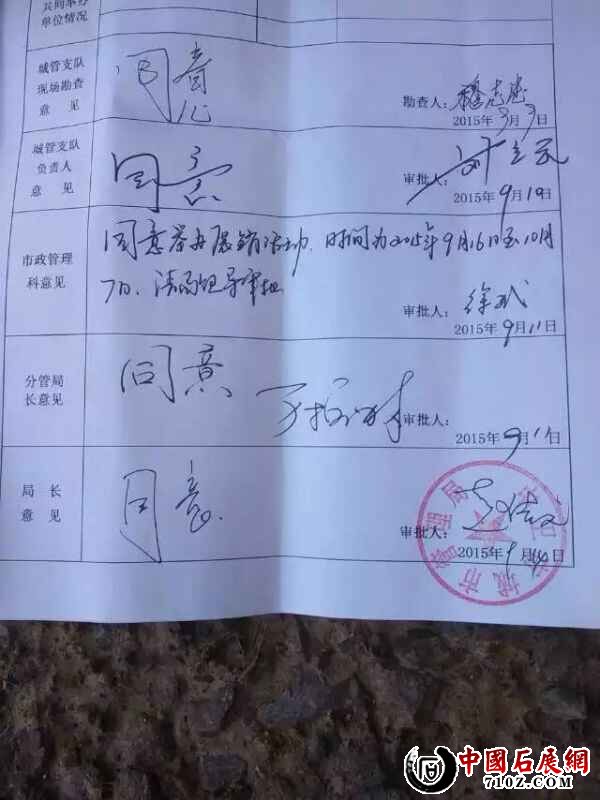 共同举办
单位情况
城管支队
现场勘查
意 见
同意
勘查人:
2015年9月9日
城管支队
负责人
意 见
同意
审批人:
2015年9月10日
市政管理
科意见
同意举办展销活动,时间为2015年9月16日至10月
7日,请局领导审批
审批人:
2015年9月11日
分管局
长意见
同意
审批人:
2015年9月1日
局 长
意 见
同意
审批人:
2015年9月 日
城市管理局
中國石展網
710Z.COM